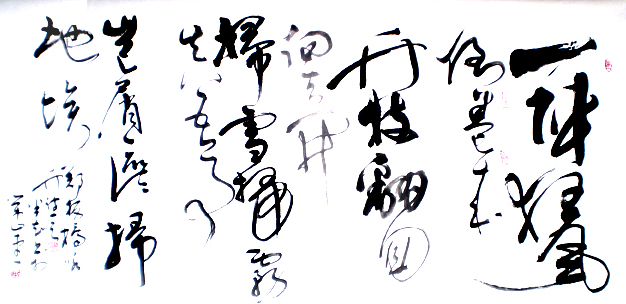 一陣狂風
倒卷来
竹枝翻回
向天开
掃雲掃霧
真吾事
豈屑區區掃
地埃
鄭板橋